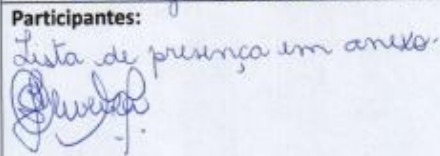 Participantes:
Lista de presença em anexo.